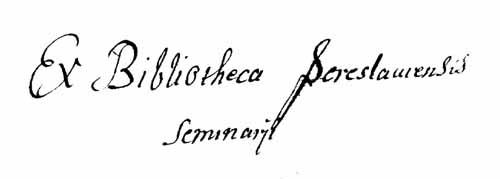 Ex Bibliotheca Pereslauiensis
Seminarij